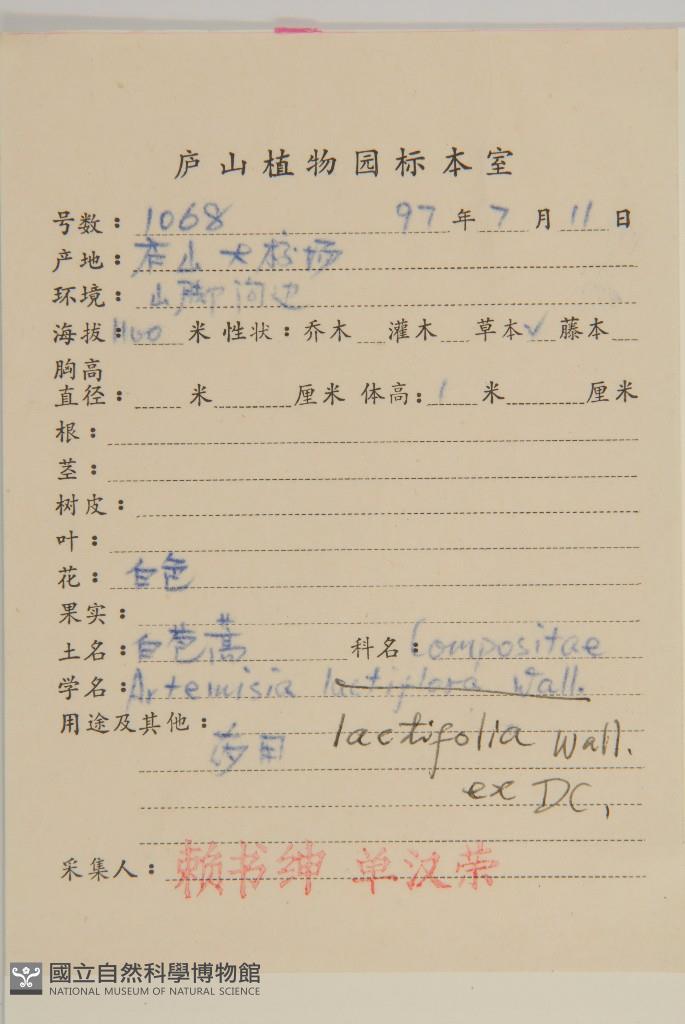 庐山植物园标本室
号数：1068 97年7月11日
产地：庐山大校场
环境：山脚沟边
海拔：1100米 性状：乔木 灌木 草本✓ 藤本
胸高
直径： 米 厘米 体高：1米 厘米
根：
茎：
树皮：
叶：
花：白色
果实：
土名：白苞蒿 科名：Compositae
学名：Artemisia lactiflora Wall.
用途及其他：药用 lactifolia Wall.
ex DC,
采集人：赖书绅 单汉荣
國立自然科學博物館
NATIONAL MUSEUM OF NATURAL SCIENCE